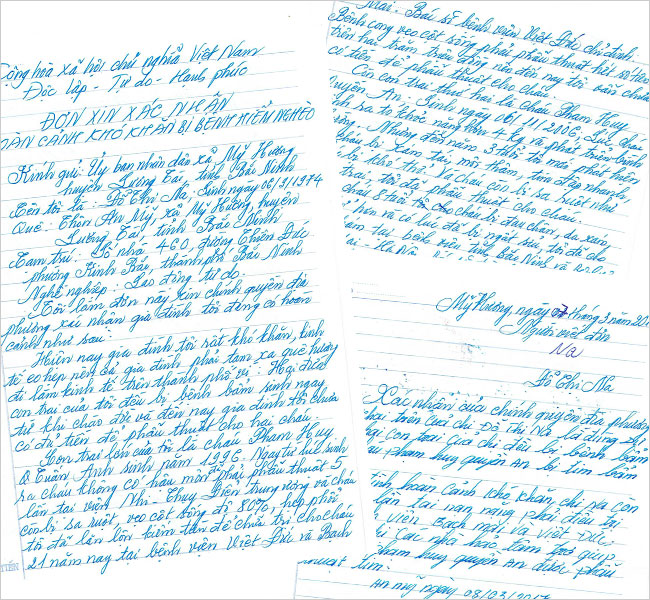 Cộng hòa xã hội chủ nghĩa Việt Nam
Độc lập - Tự do - Hạnh phúc
ĐƠN XIN XÁC NHẬN
HOÀN CẢNH KHÓ KHĂN BỊ BỆNH HIỂM NGHÈO
Kính gửi: Ủy ban nhân dân xã Mỹ Hương
huyện Lương Tài, tỉnh Bắc Ninh
Tên tôi là: Đỗ Thị Na, Sinh ngày 06/9/1974
Quê: Thiên An Mỹ, xã Mỹ Hương, huyện
Lương Tài tỉnh Bắc Ninh
Tạm trú: Số nhà 460, đường Thiên Đức
phường Kinh Bắc, thành phố Bắc Ninh
Nghề nghiệp: Lao động tự do.
Tôi làm đơn này xin chính quyền địa
phương xác nhận gia đình tôi đang có hoàn
cảnh như sau:
Hiện nay gia đình tôi rất khó khăn, kinh
tế eo hẹp nên cả gia đình phải tạm xa quê hương
đi làm kinh tế trên thành phố vì: Hai đứa
con trai của tôi đều bị bệnh bẩm sinh ngay
từ khi chào đời và đến nay gia đình tôi chưa
có đủ tiền để phẫu thuật cho hai cháu.
Con trai lớn của tôi là cháu Phạm Huy
Tuấn Anh sinh năm 1996. Ngay từ lúc sinh
ra cháu không có hậu môn phải phẫu thuật 5
lần tại viện Nhi - Thụy Điển trung ương và cháu
còn bị sa ruột, vẹo cột sống độ 80%, hẹp phổi
tôi đã lăn lộn kiếm tiền để chữa trị cho cháu
21 năm nay tại bệnh viện Việt Đức và Bạch
Mai. Bác sĩ bệnh viện Việt Đức chỉ định
Bệnh cong vẹo cột sống phải phẫu thuật hết số tiền
trên hai trăm triệu đồng nên đến nay tôi vẫn chưa
có tiền để phẫu thuật cho cháu.
Còn con trai thứ hai là cháu Phạm Huy
Quyền An, Sinh ngày 06/11/2006, Lúc cháu
sinh ra to khỏe nặng hơn 4 kg và phát triển bình
thường. Nhưng đến năm 3 tuổi tôi mới phát hiện
cháu bị tím tái, môi thâm, tim đập nhanh,
bị khó thở. Và cháu còn bị sa ruột như
trai, tôi đã phẫu thuật cho cháu.
cháu 8 tuổi thì cháu bị đau chân, da xanh,
hơn và có lúc đã bị ngất xỉu, tôi đã đưa
khám tại bệnh viện tỉnh Bắc Ninh và
Mỹ Hương, ngày 07 tháng 3 năm 20
Người viết đơn
Na
Đỗ Thị Na
Xác nhận của chính quyền địa phương
trên của chị Đỗ Thị Na là đúng
con trai của chị đều bị bệnh bẩm
Phạm huy quyền An bị tim bẩm
hoàn cảnh khó khăn, chị Na còn
lần tai nạn nặng phải điều trị
viện Bạch mai và Việt Đức.
các nhà hảo tâm giúp
phạm huy quyền An được phẫu
thuật tim.
An mỹ ngày 08/03/2017